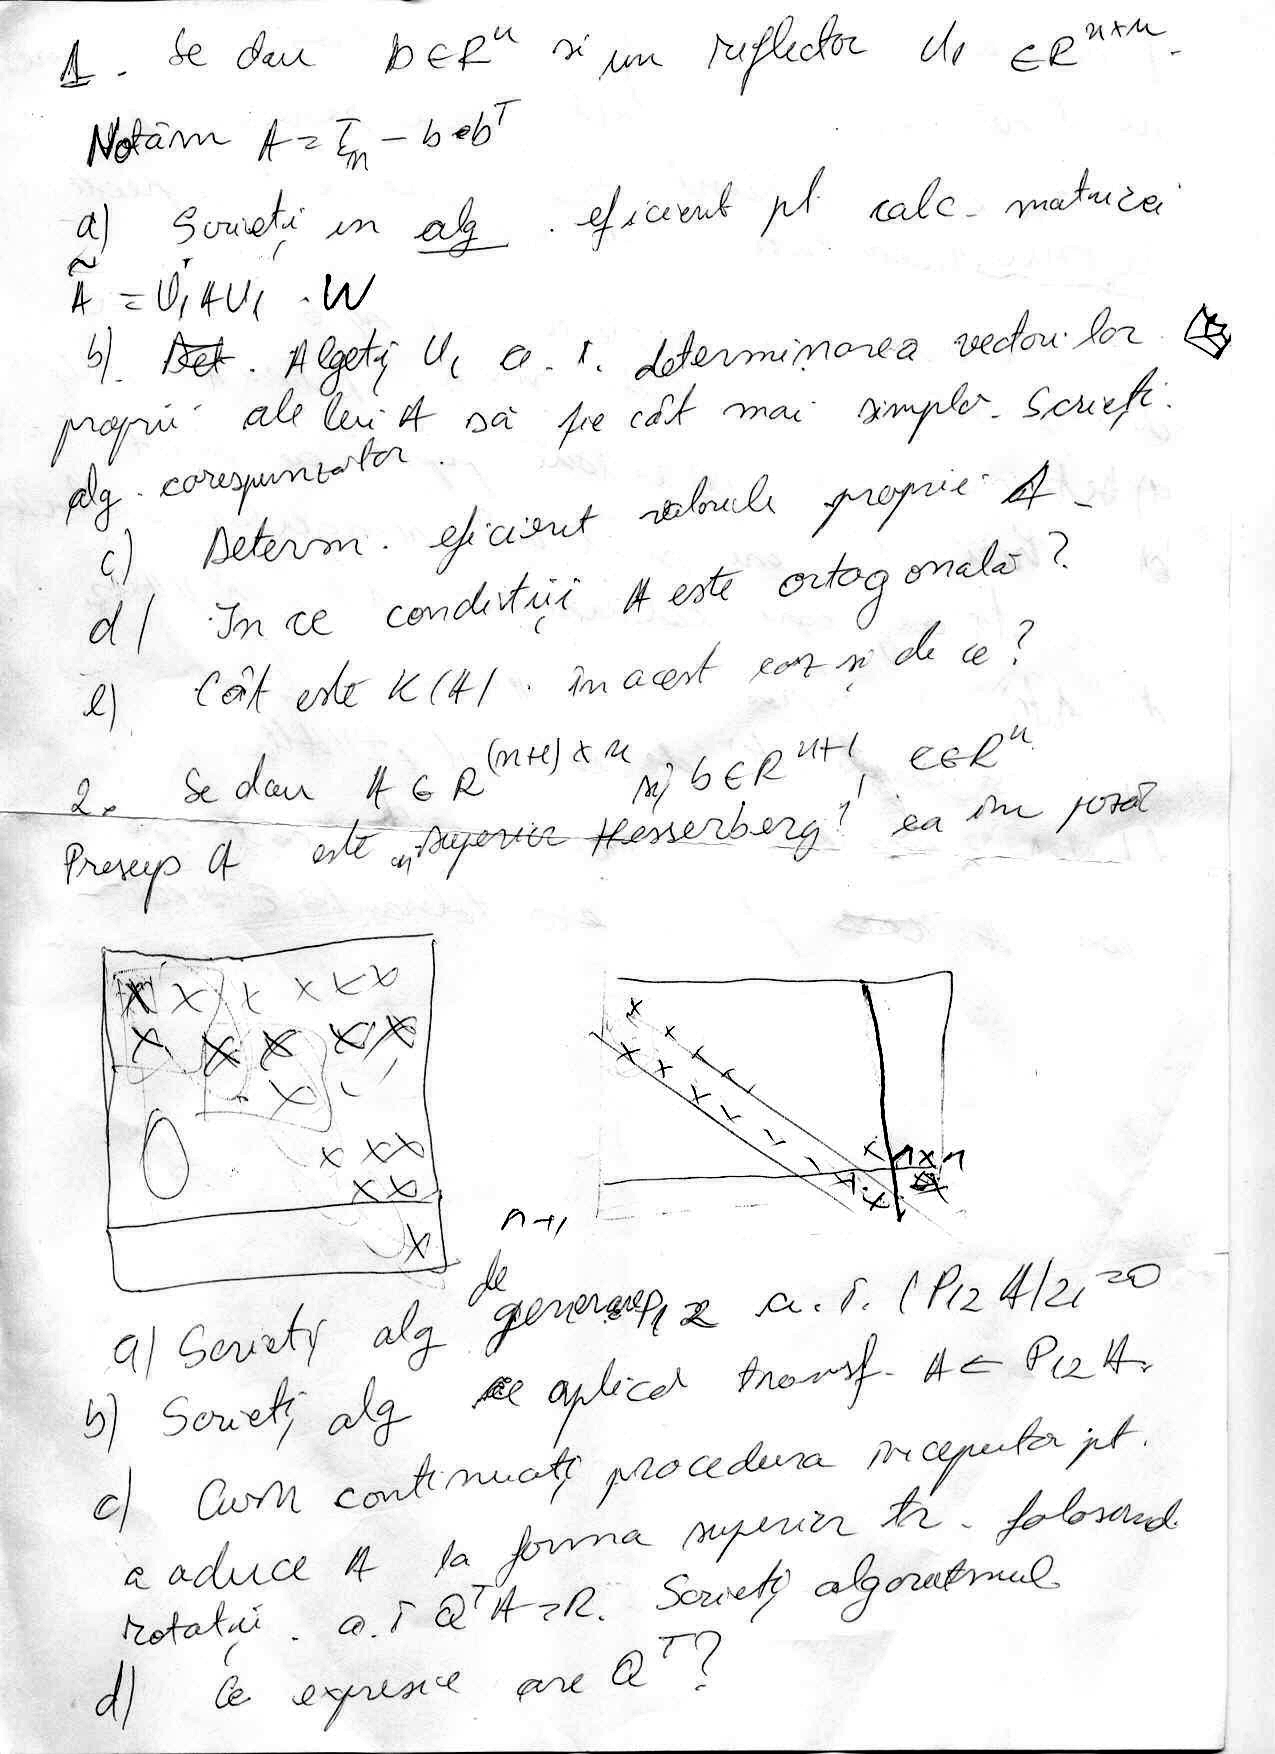 1. Se dau b ∈ R^n si un reflector U1 ∈ R^n×n.
Notăm A = I_n - b·b^T
a) Scrieți un alg. eficient pt calc. matricei
Ã = U1AU1 . W
b). Det. Algeți U1 a. î. determinarea vectorilor
proprii ale lui A să fie cât mai simplă. Scrieți.
alg. corespunzator.
c) Determ. eficient valorile proprii A.
d) In ce condiții A este ortogonală?
e) Cât este K(A). în acest caz și de ce?
2. Se dau A ∈ R^(n+1)×n și b ∈ R^n+1, c ∈ R^n
Presup A este "superior Hesserberg" ca în poză
n×n
n+1
a) Scrieți alg de generare P12 a. î. (P12 A)21=0
b) Scrieți alg ce aplică transf. A ← P12 A.
c) Cum continuați procedura inceputa pt.
a aduce A la forma superior tr. folosind
rotații. a. î Q^T A = R. Scrieți algoritmul
d) Ce expresie are Q^T?